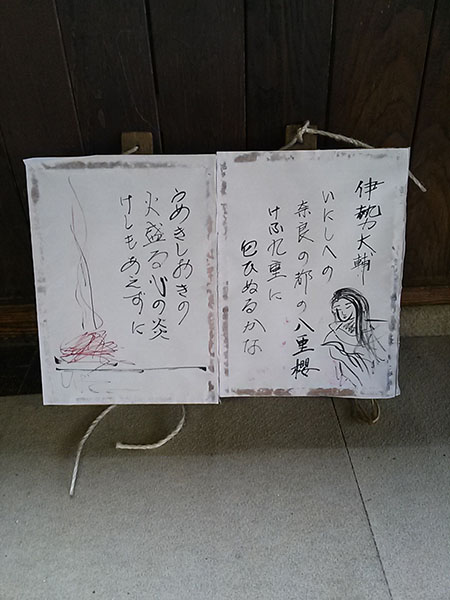 伊勢大輔
いにしへの
奈良の都の八重櫻
けふ九重に
匂ひぬるかな
うめきしおきの
火盛る心の炎
けしもあえずに